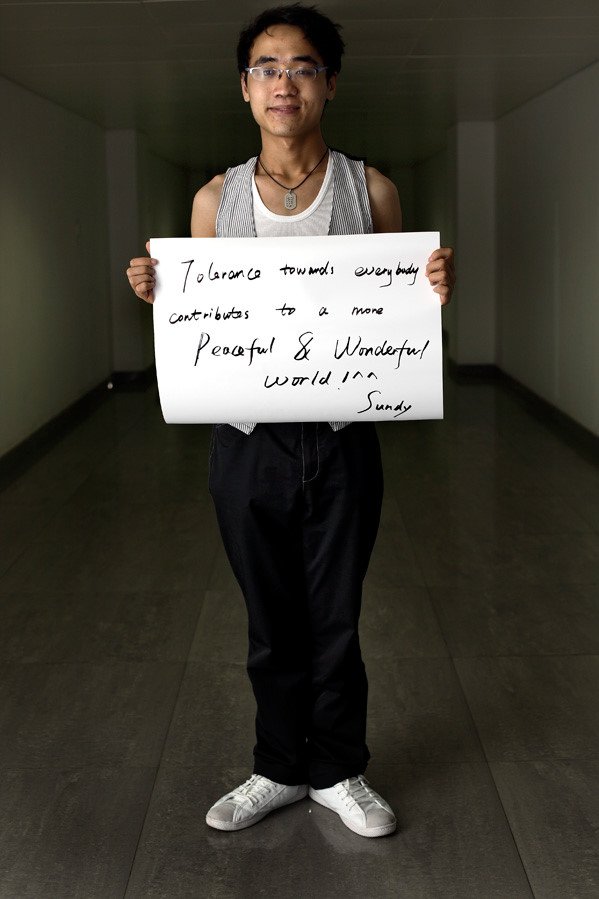 Tolerance towards everybody
contributes to a more
Peaceful & Wonderful
world!^^
Sundy